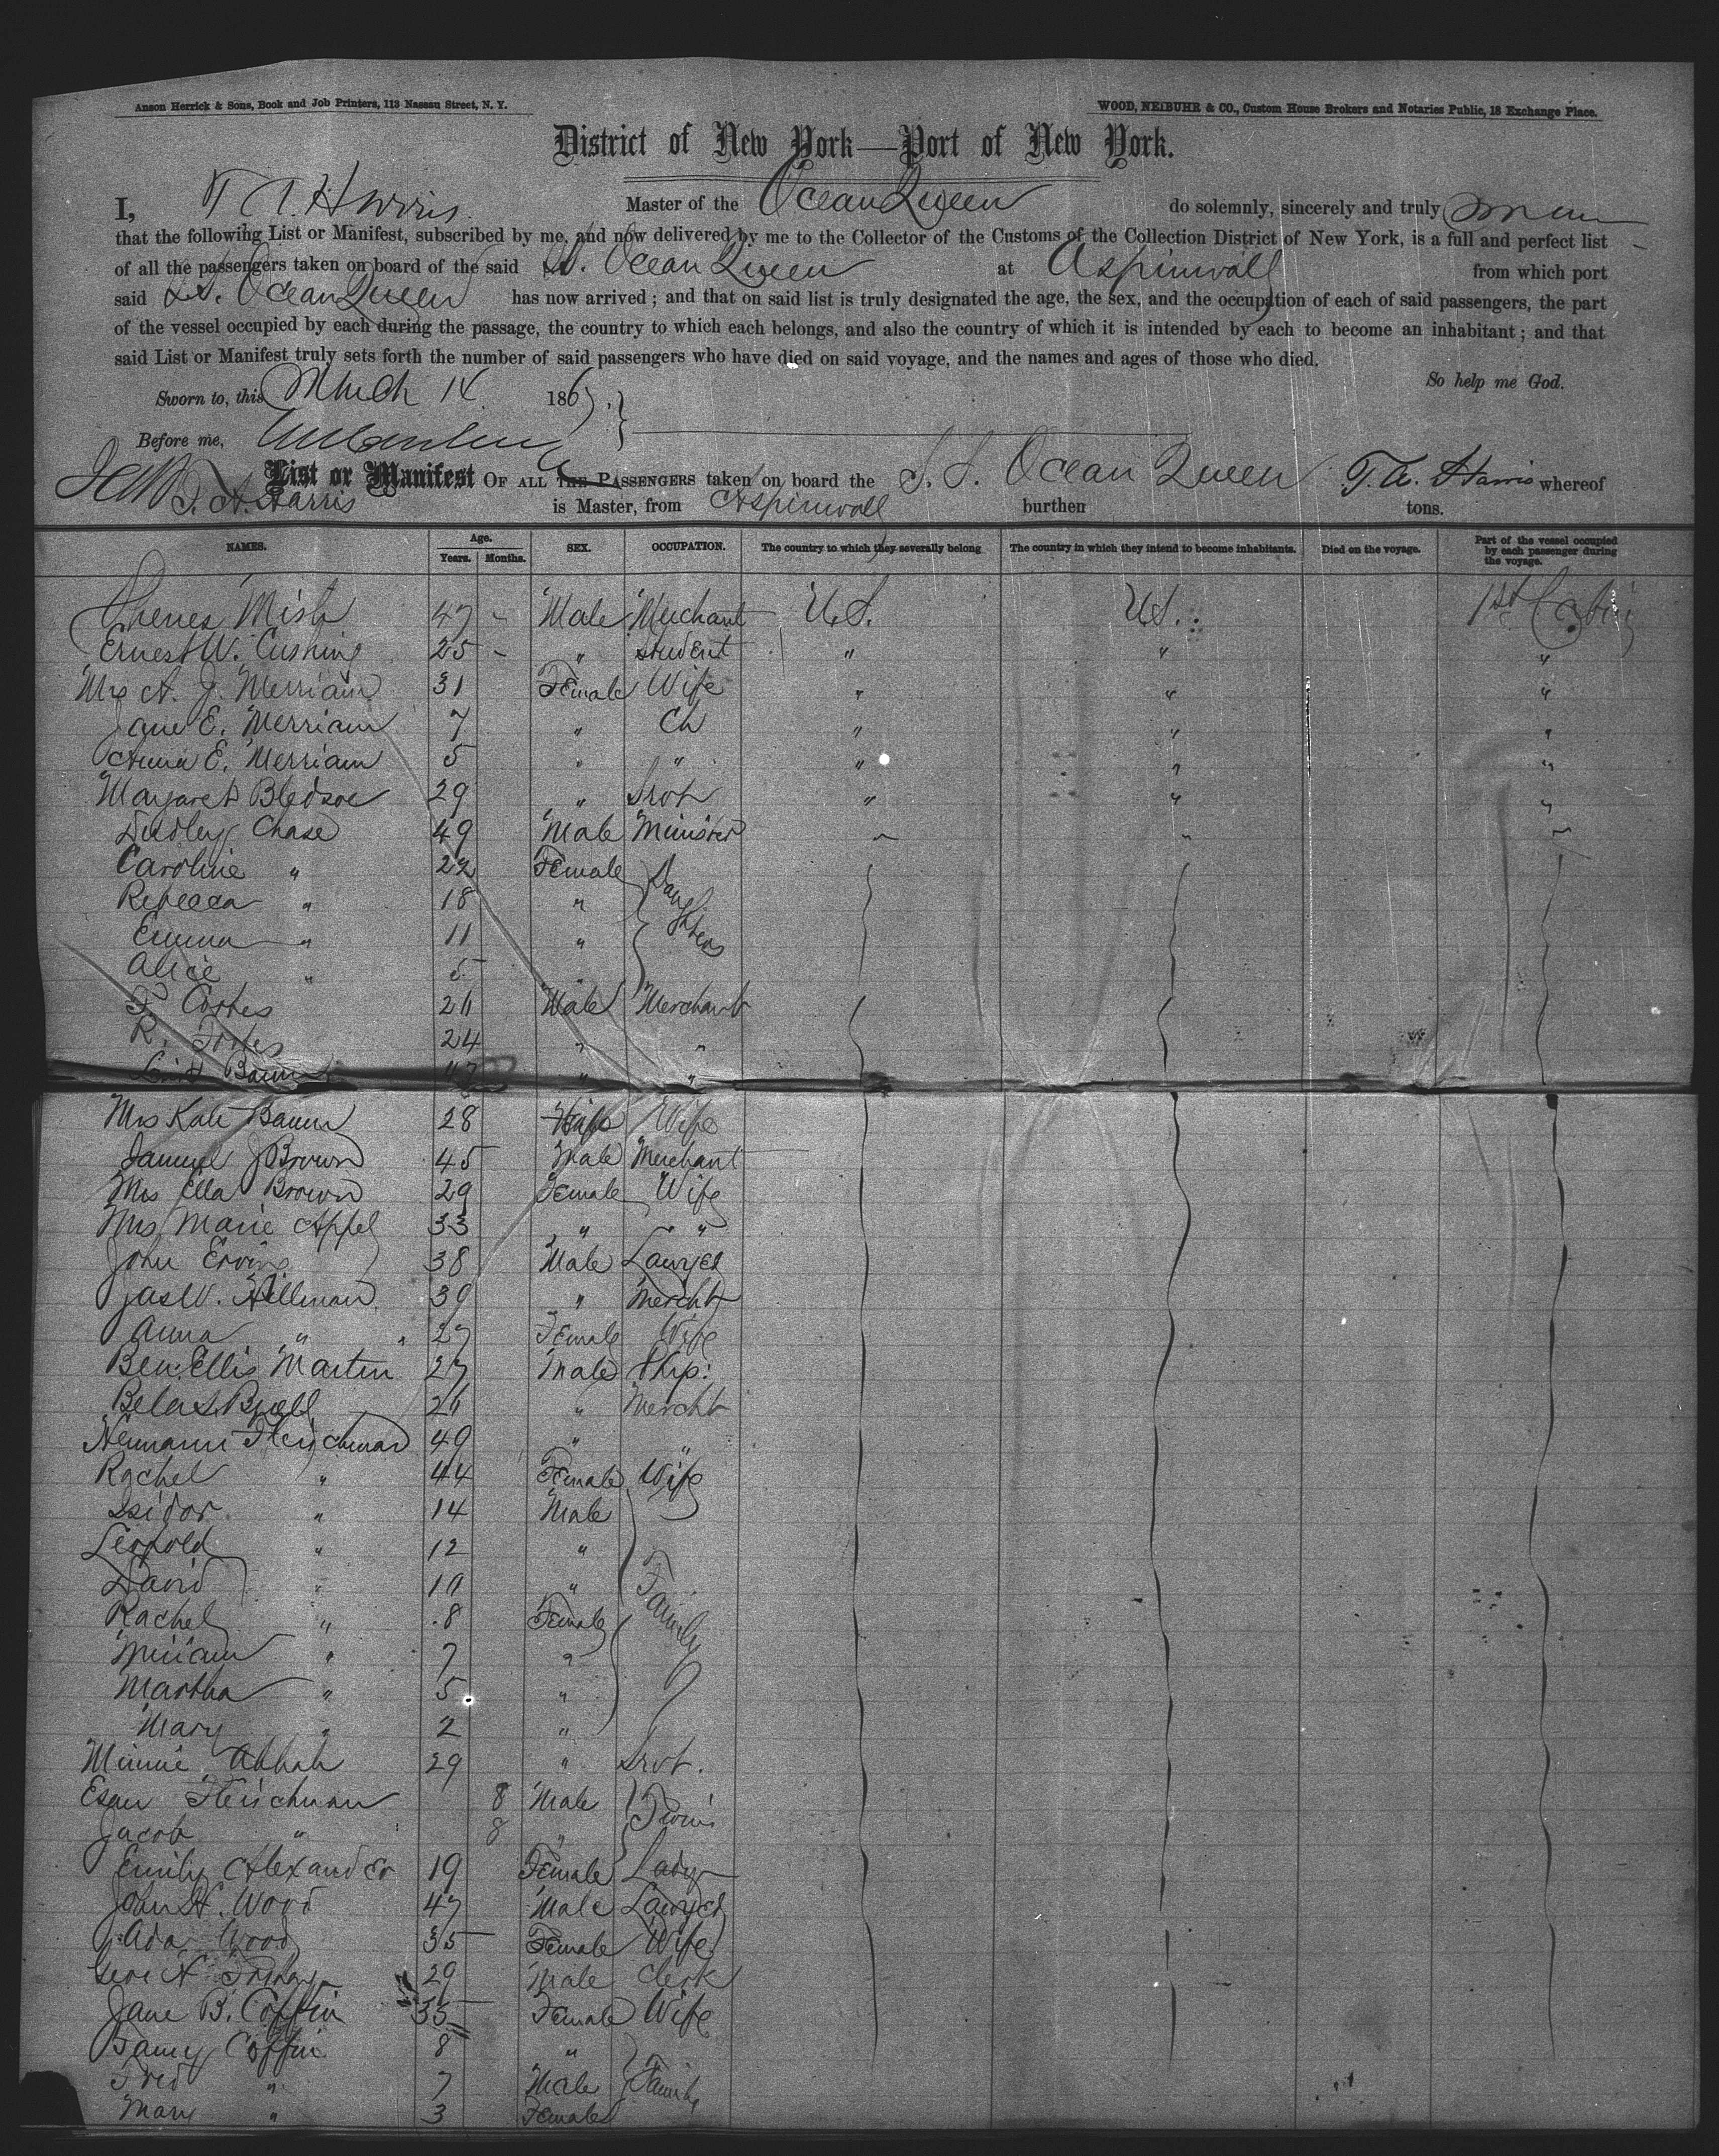 Anson Herrick & Sons, Book and Job Printers, 113 Nassau Street, N. Y.
WOOD, NEIBUHR & CO., Custom House Brokers and Notaries Public, 18 Exchange Place.
District of New York—Port of New York.
I, T A. Harris Master of the Ocean Queen do solemnly, sincerely and truly
that the following List or Manifest, subscribed by me, and now delivered by me to the Collector of the Customs of the Collection District of New York, is a full and perfect list
of all the passengers taken on board of the said Ocean Queen at Aspinwall from which port
said Ocean Queen has now arrived; and that on said list is truly designated the age, the sex, and the occupation of each of said passengers, the part
of the vessel occupied by each during the passage, the country to which each belongs, and also the country of which it is intended by each to become an inhabitant; and that
said List or Manifest truly sets forth the number of said passengers who have died on said voyage, and the names and ages of those who died.
So help me God.
Sworn to, this March 14 1867.
Before me,
List or Manifest OF ALL THE PASSENGERS taken on board the S. S. Ocean Queen T. A. Harris whereof
T. A. Harris is Master, from Aspinwall burthen tons.
NAMES. Age. Years. Months. SEX. OCCUPATION. The country to which they severally belong The country in which they intend to become inhabitants. Died on the voyage. Part of the vessel occupied by each passenger during the voyage.
Mish 47 - Male Merchant U.S. U.S. 1st Cabin
Ernest W. Cushing 25 - " student " " "
Mrs A. J. Merriam 31 Female Wife " " "
Jane E. Merriam 7 " Ch " " "
Anna E. Merriam 5 " " " " "
Margaret Bledsoe 29 " Srvt " " "
Dudley Chase 49 Male Minister
Caroline " 22 Female Daughters
Rebecca " 18 "
Emma " 11 "
Alice " 5
F. 26 Male Merchant
R. 24 " "
" "
Mrs Kate Baum 28 Wife
Samuel Brown 45 Male Merchant
Mrs Ella Brown 29 Female Wife
Mrs Marie Appel 33 " "
John Erving 38 Male Lawyer
Jas W. Hillman 39 " Mercht
Anna " 27 Female Wife
Ben: Ellis Martin 27 Male Ship:
Bela S. Buell 26 " Mercht
Hermann Fleischman 49 " "
Rachel " 44 Female Wife
Isidor " 14 Male
Leopold " 12 "
David " 10 " Family
Rachel " 8 Female
Miriam " 7 "
Martha " 5 "
Mary " 2 "
Minnie 29 " Srvt.
Esau Fleischman 8 Male Twins
Jacob " 8 "
Emily Alexander 19 Female Lady
John H. Wood 47 Male Lawyer
Ada Wood 35 Female Wife
29 Male Clerk
Jane B. Coffin 35 Female Wife
Coffin 8 "
Fred " 7 Male Family
Mary " 3 Female